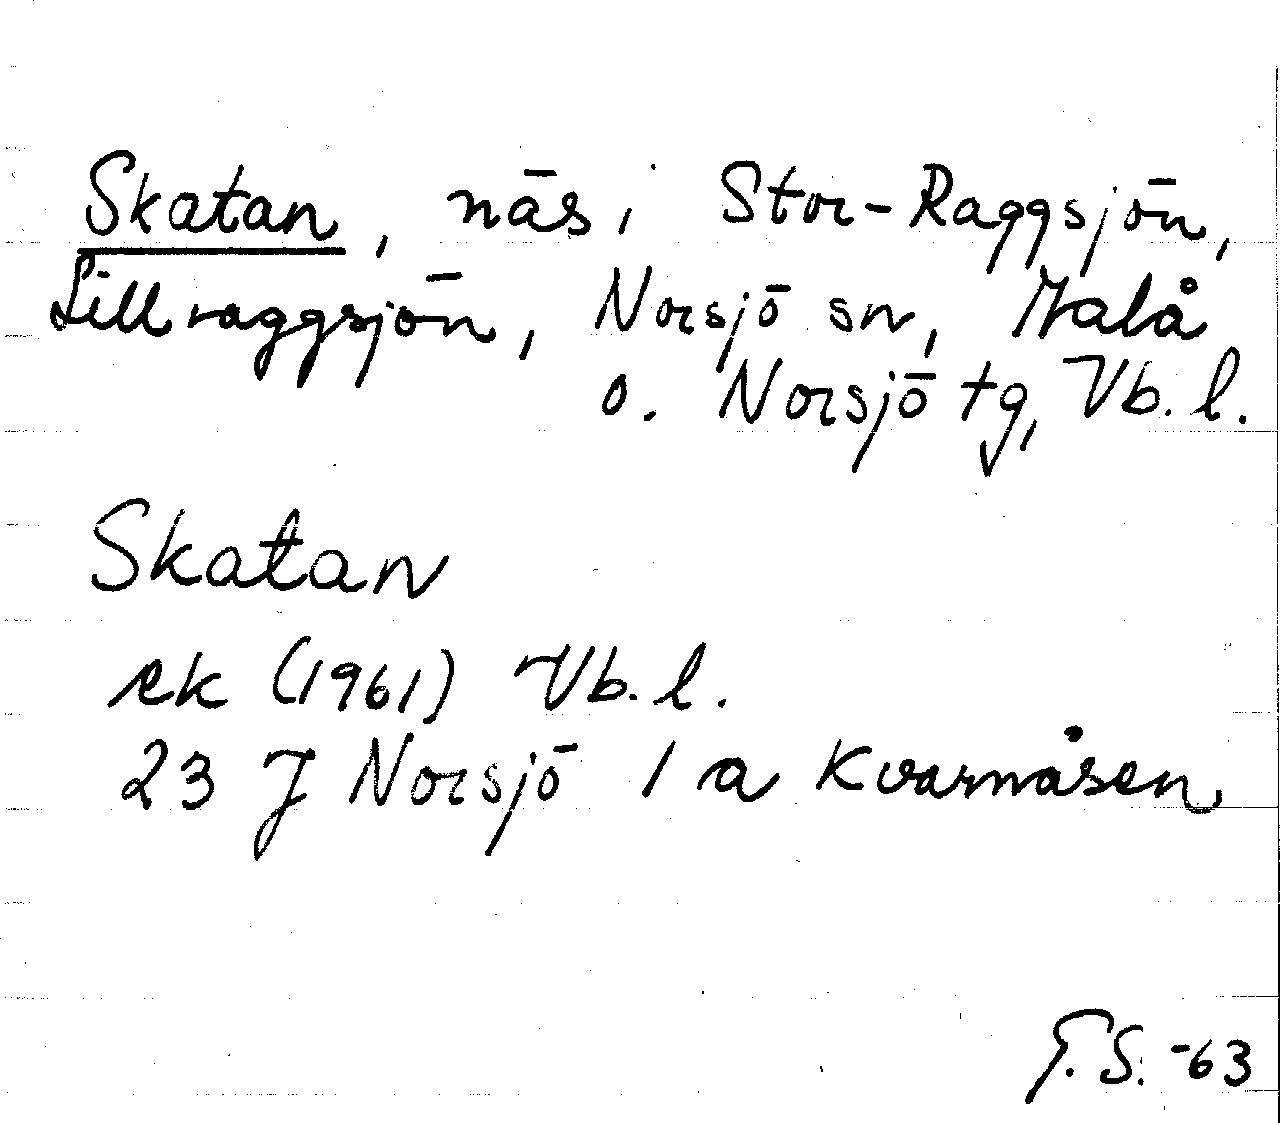 Skatan, näs i Stor-Raggsjön,
Lillraggsjön, Norsjö sn, Malå
o. Norsjö tg, Vb. l.
Skatan
ek (1961) Vb. l.
23 J Norsjö 1 a Kvarnåsen
G.S. -63